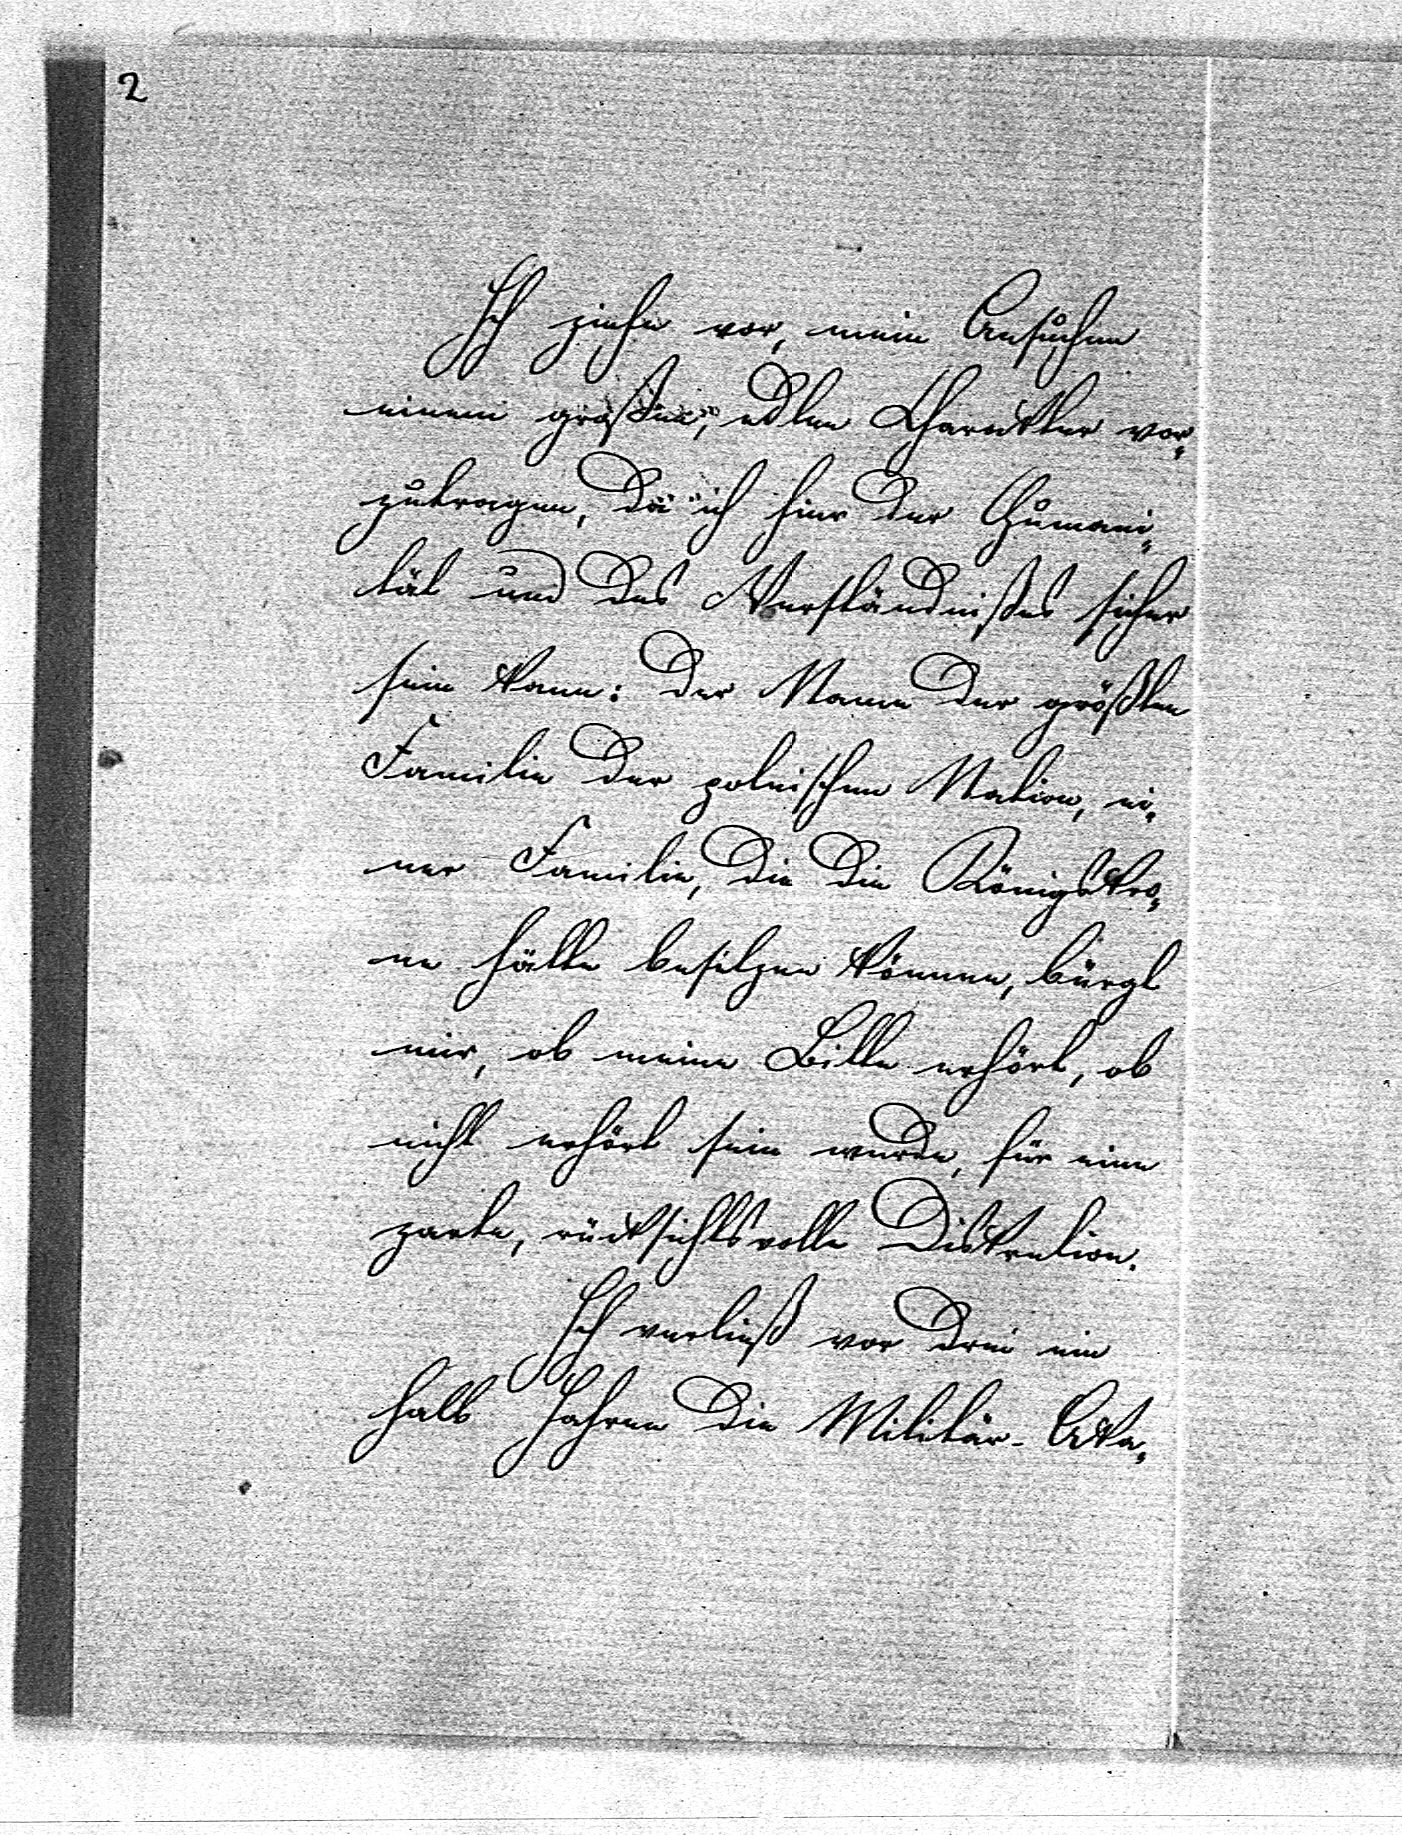 2
Ich ziehe vor, mein Ansuchen
einem großen, edlen Charakter vor„
zutragen, da ich hier der Humani„
tät und des Verständnißes sicher
sein kann: der Name der größten
Familie der polnischen Nation, ei„
ner Familie, die die Königskro„
ne hätte besitzen können, bürgt
mir, ob meine Bitte erhört, ob
nicht erhört sein wurde, für eine
zarte, rücksichtsvolle Diskretion.
Ich verließ vor drei ein
halb Jahren die Militär-Aka„